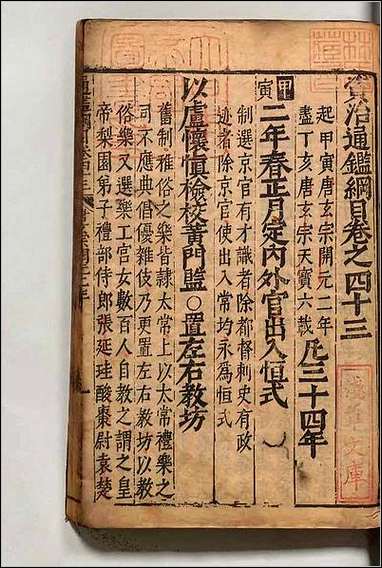 資治通鑑綱目卷之四十三
起甲寅唐玄宗開元二年
盡丁亥唐玄宗天寶六載
凡三十四年
甲寅
二年春正月定內外官出入恒式
制選京官有才識者除都督刺史有政
迹者除京官使出入常均永為恒式
以盧懷慎檢校黃門監○置左右教坊
舊制雅俗之樂皆隸太常上以太常禮樂之
司不應典倡優雜伎乃更置左右教坊以教
俗樂又選樂工宮女數百人自教之謂之皇
帝梨園弟子禮部侍郎張廷珪酸棗尉袁楚
文庫